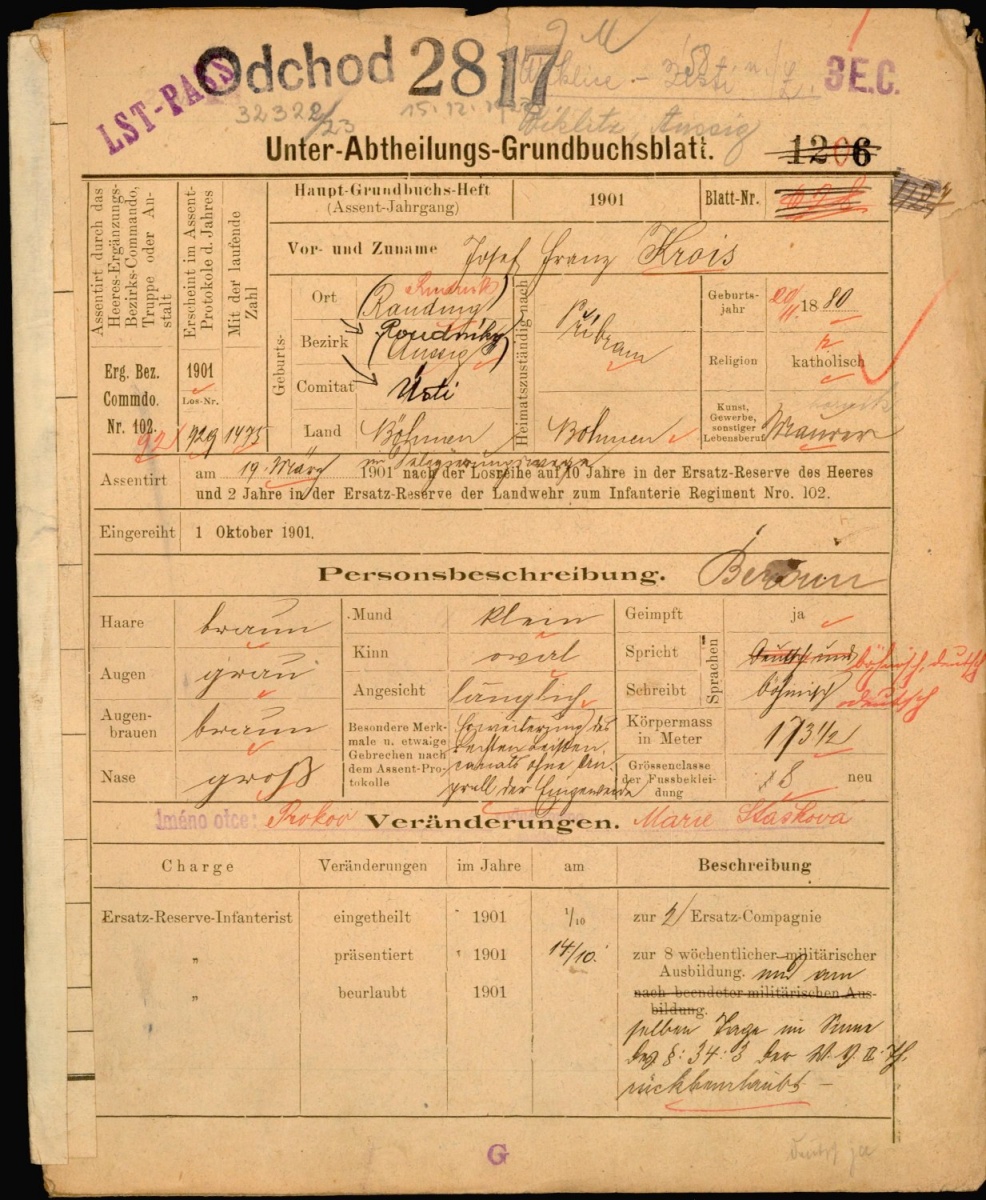 Odchod 2817
LST-PASS
32322/23
15. 12. 1923
GE.C.
Wiklitz, Aussig
Unter-Abtheilungs-Grundbuchsblatt.
1206
Assentirt durch das Heeres-Ergänzungs-Bezirks-Commando, Truppe oder Anstalt
Erscheint im Assent-Protokole d. Jahres
Mit der laufende Zahl
Haupt-Grundbuchs-Heft
(Assent-Jahrgang)
1901
Blatt-Nr.
Vor- und Zuname Josef Franz Krois
Geburts-
Ort
Bezirk
(Aussig)
Comitat Ústi
Land Böhmen
Heimatszuständig nach
Přibram
Böhmen
Geburts-
jahr
20/11 1880
Religion
r.
katholisch
Kunst,
Gewerbe,
sonstiger
Lebensberuf
Maurer
Erg. Bez.
Commdo.
Nr. 102.
92
1901
Los-Nr.
929 1475
Assentirt
am 19. März 1901 nach der Losreihe auf 10 Jahre in der Ersatz-Reserve des Heeres
und 2 Jahre in der Ersatz-Reserve der Landwehr zum Infanterie Regiment Nro. 102.
Eingereiht 1 Oktober 1901.
Personsbeschreibung. Beraun
Haare braun
Augen grau
Augen-
brauen
braun
Nase groß
Mund klein
Kinn oval
Angesicht länglich
Besondere Merk-
male u. etwaige
Gebrechen nach
dem Assent-Pro-
tokolle
Erweiterung des
rechten Leisten-
canals ohne An-
prall der Eingeweide
Geimpft ja
Sprachen
Spricht deutsch und böhmisch, deutsch
Schreibt böhmisch deutsch
Körpermass
in Meter
173 1/2
Grössenclasse
der Fussbeklei-
dung
8 neu
Jméno otce: Prokop Veränderungen. Marie Stasková
Charge Veränderungen im Jahre am Beschreibung
Ersatz-Reserve-Infanterist eingetheilt 1901 1/10 zur 2/ Ersatz-Compagnie
" präsentiert " 1901 14/10. zur 8 wöchentlicher militärischer
Ausbildung. und am
" beurlaubt 1901 nach beendeter militärischen Aus-
bildung.
selben Tage im Sinne
des §: 34:3 der W. V. II. Th.
rückbeurlaubt –
G